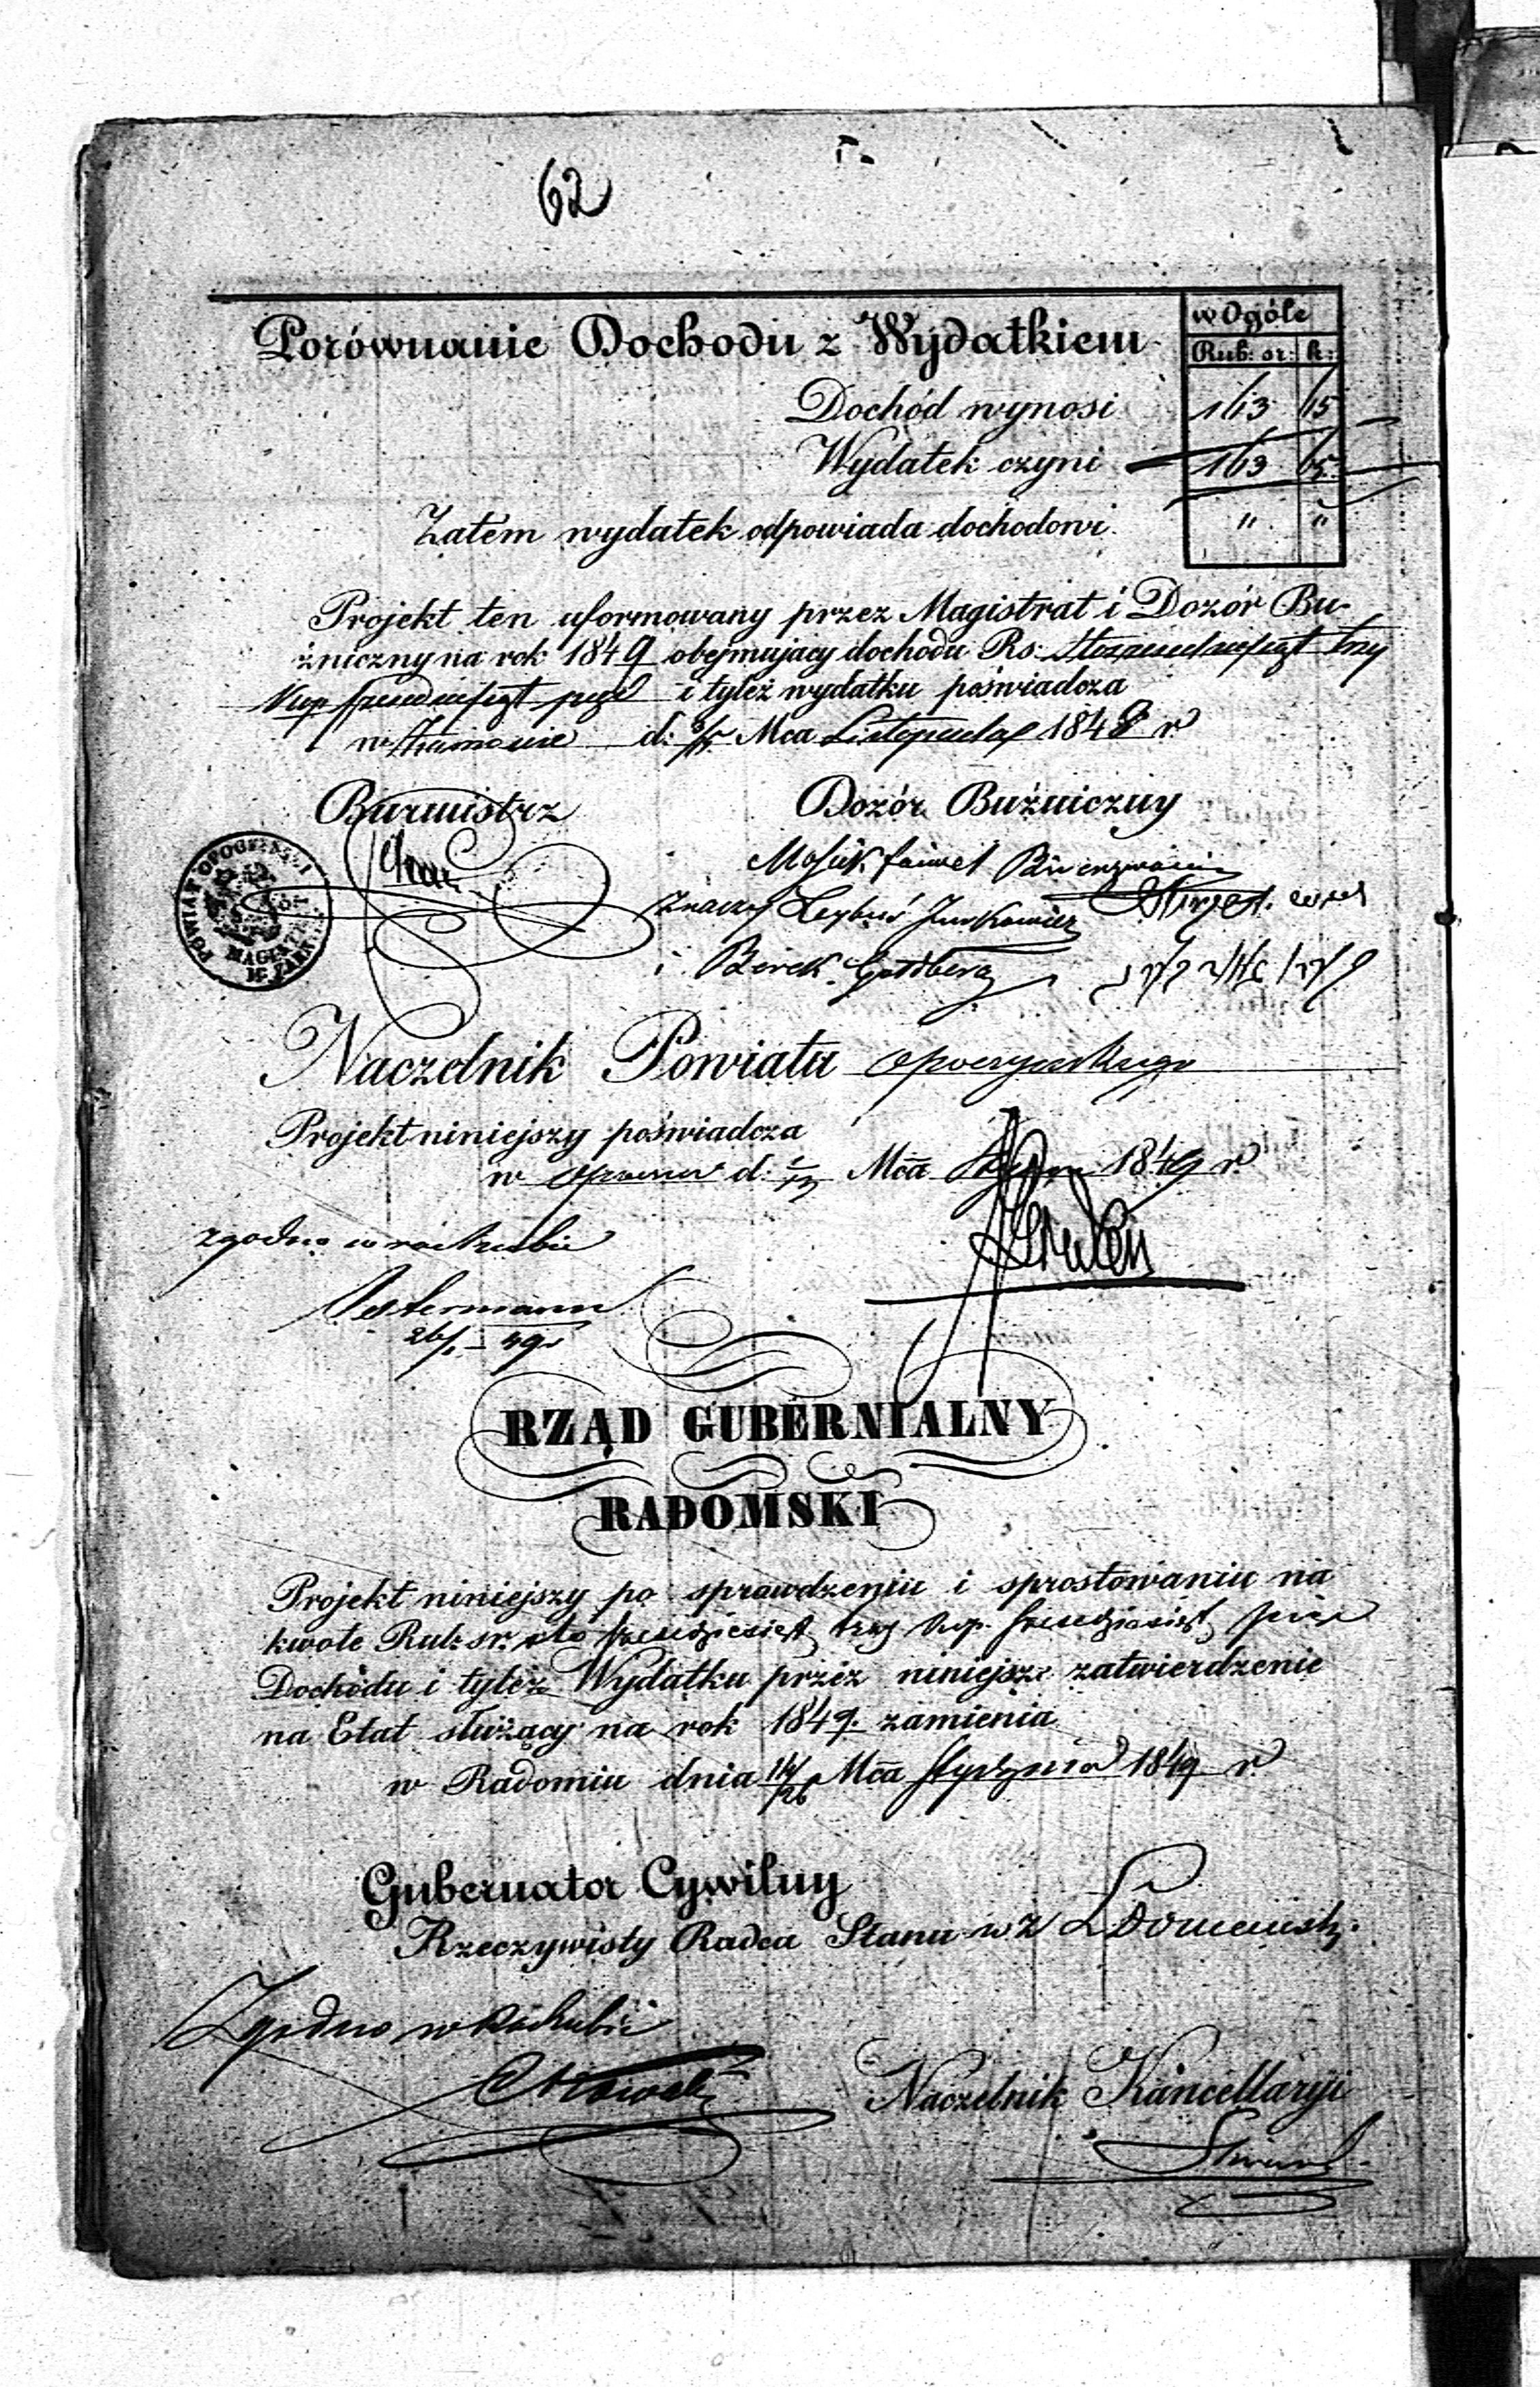 62
Porównanie Dochodu z Wydatkiem
w Ogóle
Rub: sr: k:
Dochód wynosi 163 65
Wydatek czyni 163 65
Zatem wydatek odpowiada dochodowi. " "
Projekt ten uformowany przez Magistrat i Dozór Bu-
źniczny na rok 1849 obejmujący dochodu Rs: sto sześćdziesiąt trzy
kop sześćdziesiąt pięć i tyleż wydatku poświadcza
w d: 3/15 Mca Listopada 1848 r
Burmistrz Dozór Buźniczny
POWIAT OPOCZYŃSKI MAGISTRAT
Moszek
znaczy Leybuś Jurkowicz
i Berek Goldberg
Naczelnik Powiatu Opoczyńskiego
Projekt niniejszy poświadcza
w Opocznie d: Mca 1849 r
zgodno w rachubie
Ostermann
26/1 49
RZĄD GUBERNIALNY
RADOMSKI
Projekt niniejszy po sprawdzeniu i sprostowaniu na
kwotę Rub: sr. sto sześćdziesiąt trzy kop. sześćdziesiąt pięć
Dochodu i tyleż Wydatku przez niniejsze zatwierdzenie
na Etat służący na rok 1849. zamienia
w Radomiu dnia 14/26 Mca Stycznia 1849 r
Gubernator Cywilny
Rzeczywisty Radca Stanu w z
Zgodno w Rachubie
Naczelnik Kancellaryi